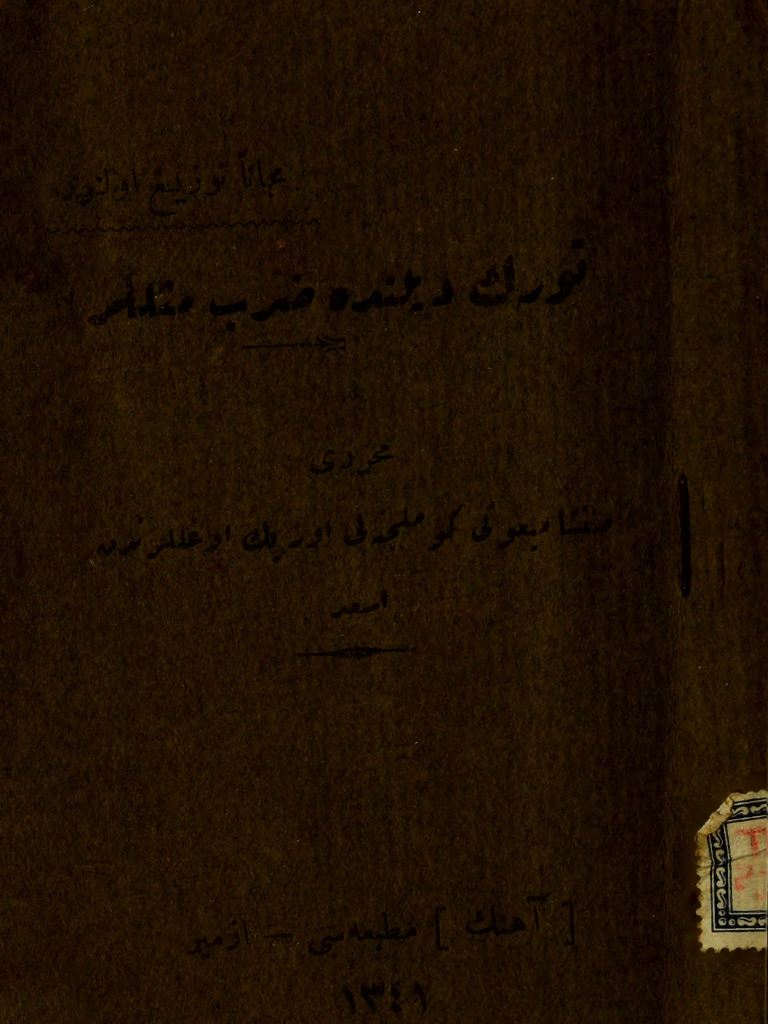 مجاناً توزيع اولنور
تورك ديلنده ضرب مثللر
محررى
منتشا مبعوثى كوملجنه لى اوزبك اوغللرندن
اسعد
[ آهنك ] مطبعه سى — ازمير
١٣٤١